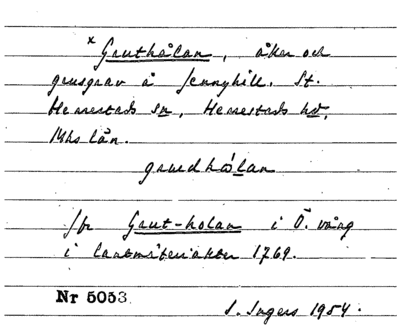 x Gruthålan, åker och
grusgrav å Jennyhill. St.
Herrestads sn, Herrestads hd,
Mhs län.
grudhålan
Jfr Grut-holan i Ö. vång
i lantmäteriakter 1769.
Nr 5053.
I. Ingers 1954.